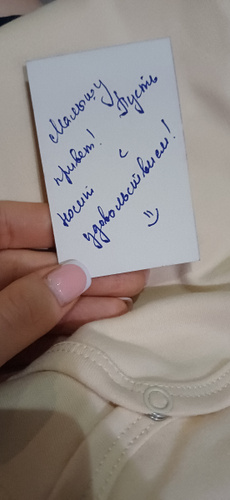 Малышу
привет! Пусть
носит с
удовольствием!